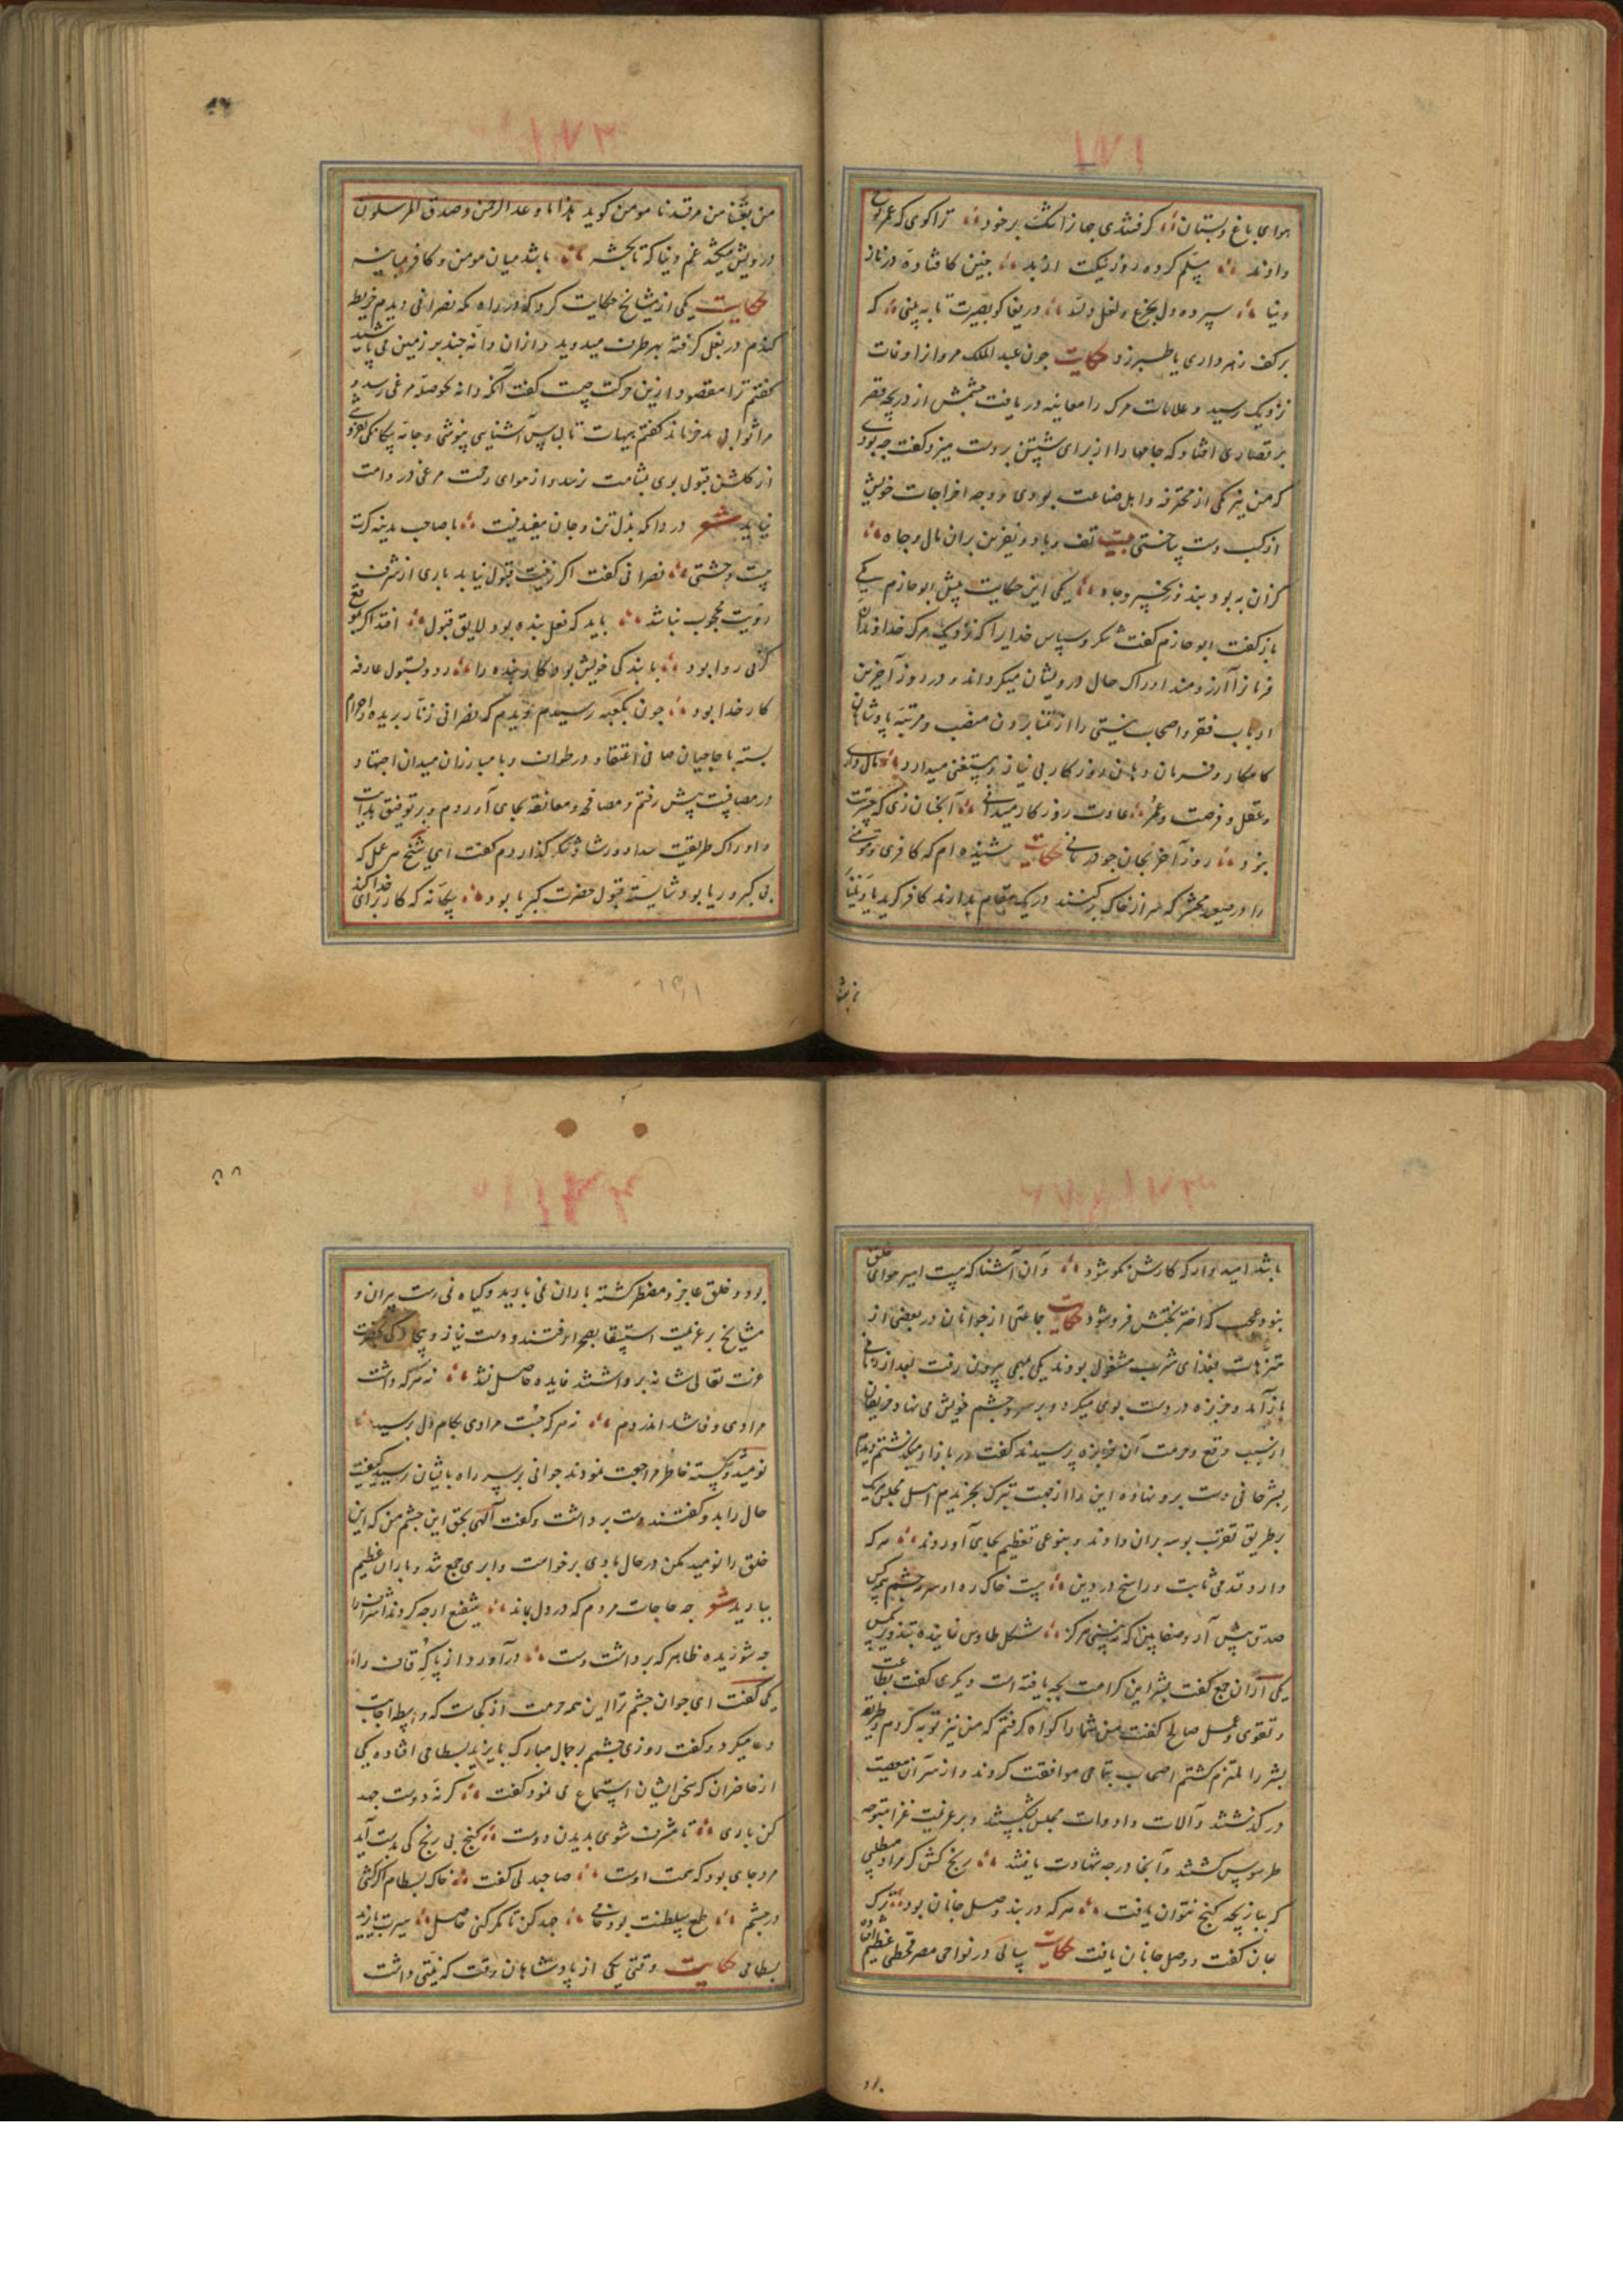 ۱۸۱
هوای باغ و بستان ؛ گرفتندی جهان را تنگ بر خود ؛ ترا گوی که عمر نوح
دادند ؛ مسلم کرده روز نیکت از بد ؛ چنین کافتاده در ناز
دنیا ؛ سپرده دل بجزع و لعل و بسد ؛ دریغا کو بصیرت تا به بینی ؛ که
بر کف زهر داری یا طبرزد حکایت چون عبد الملک مروان را وفات
نزدیک رسید و علامات مرک را معاینه دریافت چشمش از دریچه قصر
بر قصاری افتاد که جامها را از برای شستن بر دست میزد گفت چه بودی
که من نیز یکی از محترفه و اهل صناعت بودی و وجه اخراجات خویش
از کسب دست ساختی بیت تف و باد و نفرین بران مال و جاه ؛
کزان به بود بند و زنجیر و چاه ؛ یکی این حکایت پیش ابو حازم
باز گفت ابو حازم گفت شکر و سپاس خدایرا که نزدیک مرک خداوندان
فرمانرا آرزومند ادراک حال درویشان میکرداند و در روز آخرین
ارباب فقر و اصحاب نیستی را از تمنا بردن منصب و مرتبه پادشاهان
کامکار و فرمان دهان روزکار بی نیاز و مستغنی میدارد ؛ مال داری
و عقل و فرصت و عمر ؛ عادت روزکار میدانی ؛ آنچنان زی که حسرت
نبرد ؛ روز آخر بجان چو درمانی حکایت شنیده ام که کافری و مومنی
را در صعید محشر که سر از خاک برکنند در یک مقام بدارند کافر کوید یا ویلنا
من بعثنا
۱۸۲
من بعثنا من مرقدنا مومن کوید هذا ما وعد الرحمن و صدق المرسلون
درویش میکشد غم دنیا که تا بحشر ؛ باشد میان مومن و کافر مباینه
حکایت یکی از مشایخ حکایت کرد که در راه مکه نصرانی دیدم خریطه
کندم در بغل کرفته بهر طرف میدوید و ازان دانه چند بر زمین می پاشید
گفتم ترا مقصود ازین حرکت چیست گفت آنکه دانه بحوصله مرغی رسد و
مرا ثوابی مدخر ماند گفتم هیهات تا لباس آشنایی نپوشی و جامه بیکانکی
از کلشن قبول بوی بمشامت نرسد و از هوای رحمت مرغی در دامت
نیاید شعر دردا که بذل تن و جان مفید نیست ؛ با صاحب مدینه کرت
هست وحشتی ؛ نصرانی گفت اکر زینت قبول نیابد باری از شرف
رویت محجوب نباشد ؛ باید که فعل بنده بود لایق قبول ؛ افتد اکر
روا بود ؛ با بندکی خویش بود کار بنده را ؛ رد و قبول عارفه
کار خدا بود ؛ چون بکعبه رسیدم دیدم که نصرانی زنار بریده و احرام
بسته با حاجیان صافی اعتقاد در طواف و با مبارزان میدان اجتهاد
در مصاف پیش رفتم و مصافحه و معانقه بجای آوردم و بر توفیق هدایت
و ادراک طریقت سداد و رشاد شکر کذاردم گفت ای شیخ هر عمل که
بی کبر و ریا بود شایسته قبول حضرت کبریا بود ؛ بیکانه که کار برای خدا کند
۱۸۳
باشد امیدوار که کارش نکو شود ؛ و آن آشنا که هست اسیر هوای خلق
نبود عجب که اختر بختش فرو شود حکایت جماعتی از جوانان در بعضی از
متنزهات بغذای شرب مشغول بودند یکی بمهمی بیرون رفت بعد از زمانی
باز آمد و خربزه در دست بوی میکرد و بر سر و چشم خویش می نهاد حریفان
از سبب وقع و حرمت آن خربزه پرسیدند گفت در بازار میکذشتم دیدم
بشر حافی دست برو نهاده این را از جهت تبرک بخریدم اهل مجلس هریک
بر طریق تقرب بوسه بران دادند و بنوعی تعظیم بجای آوردند ؛ هر که
دارد قدمی ثابت و راسخ در دین ؛ هست خاک ره او سرمه چشم همه کس
صدق پیش آر و صفا بین که نه بینی هرکز ؛ شکل طاوس نماینده بتذویر مکس
یکی از آن جمع گفت بشر این کرامت بچه یافته است دیکری گفت بطاعت
و تقوی و عمل صالح گفت من شما را کواه کرفتم که من نیز توبه کردم و طریقه
بشر را ملتزم کشتم اصحاب بتمامی موافقت کردند و از سر آن معصیت
در کذشتند و آلات و ادوات مجلس بشکستند و بر عزیمت غزا متوجه
طرسوس کشتند و آنجا درجه شهادت یافتند ؛ رنج کش کر مراد میطلبی
که ببازیچه کنج نتوان یافت ؛ هر که در بند وصل جانان بود ؛ ترک
جان گفت و وصل جانان یافت حکایت سالی در نواحی مصر قحطی عظیم افتاده
بود
۱۸۴
بود و خلق عاجز و مضطر کشته باران نمی بارید و کیاه نمی رست پیران و
مشایخ بر عزیمت استسقا بصحرا رفتند و دست نیاز و بیچارکی بحضرت
عزت تعالی شانه برداشتند فایده حاصل نشد ؛ نه هر که داشت
مرادی وفا شد اندر دم ؛ نه هر که جست مرادی بکام دل برسید ؛
نومید و شکسته خاطر مراجعت نمودند جوانی بر سر راه بایشان رسید کیفیت
حال را بدو گفتند دست برداشت و گفت الهی بحق این چشم من که این
خلق را نومید مکن در حال بادی برخواست و ابری جمع شد و باران عظیم
ببارید شعر چه حاجات مردم که در دل بماند ؛ شفیع ار چه کردند اشراف را
چه شوریده ظاهر که برداشت دست ؛ درآورد از پا که قاف را ؛
یکی گفت ای جوان چشم ترا این همه حرمت از کجاست که واسطه اجابت
دعا میکردد گفت روزی چشمم بر جمال مبارک بایزید بسطامی افتاده یکی
از حاضران که سخن ایشان استماع می نمود گفت ؛ کر نه دوست جهد
کن باری ؛ تا مشرف شوی بدیدن دوست ؛ کنج بی رنج کی بدست آید
مرد جای بود که همت اوست ؛ صاحبدلی گفت ؛ خاک بسطام اکر کشی
در چشم ؛ طمع سلطنت بود خامی ؛ جهد کن تا مکر کنی حاصل ؛ سیرت بایزید
بسطامی حکایت وقتی یکی از پادشاهان رقت که نیتی داشت